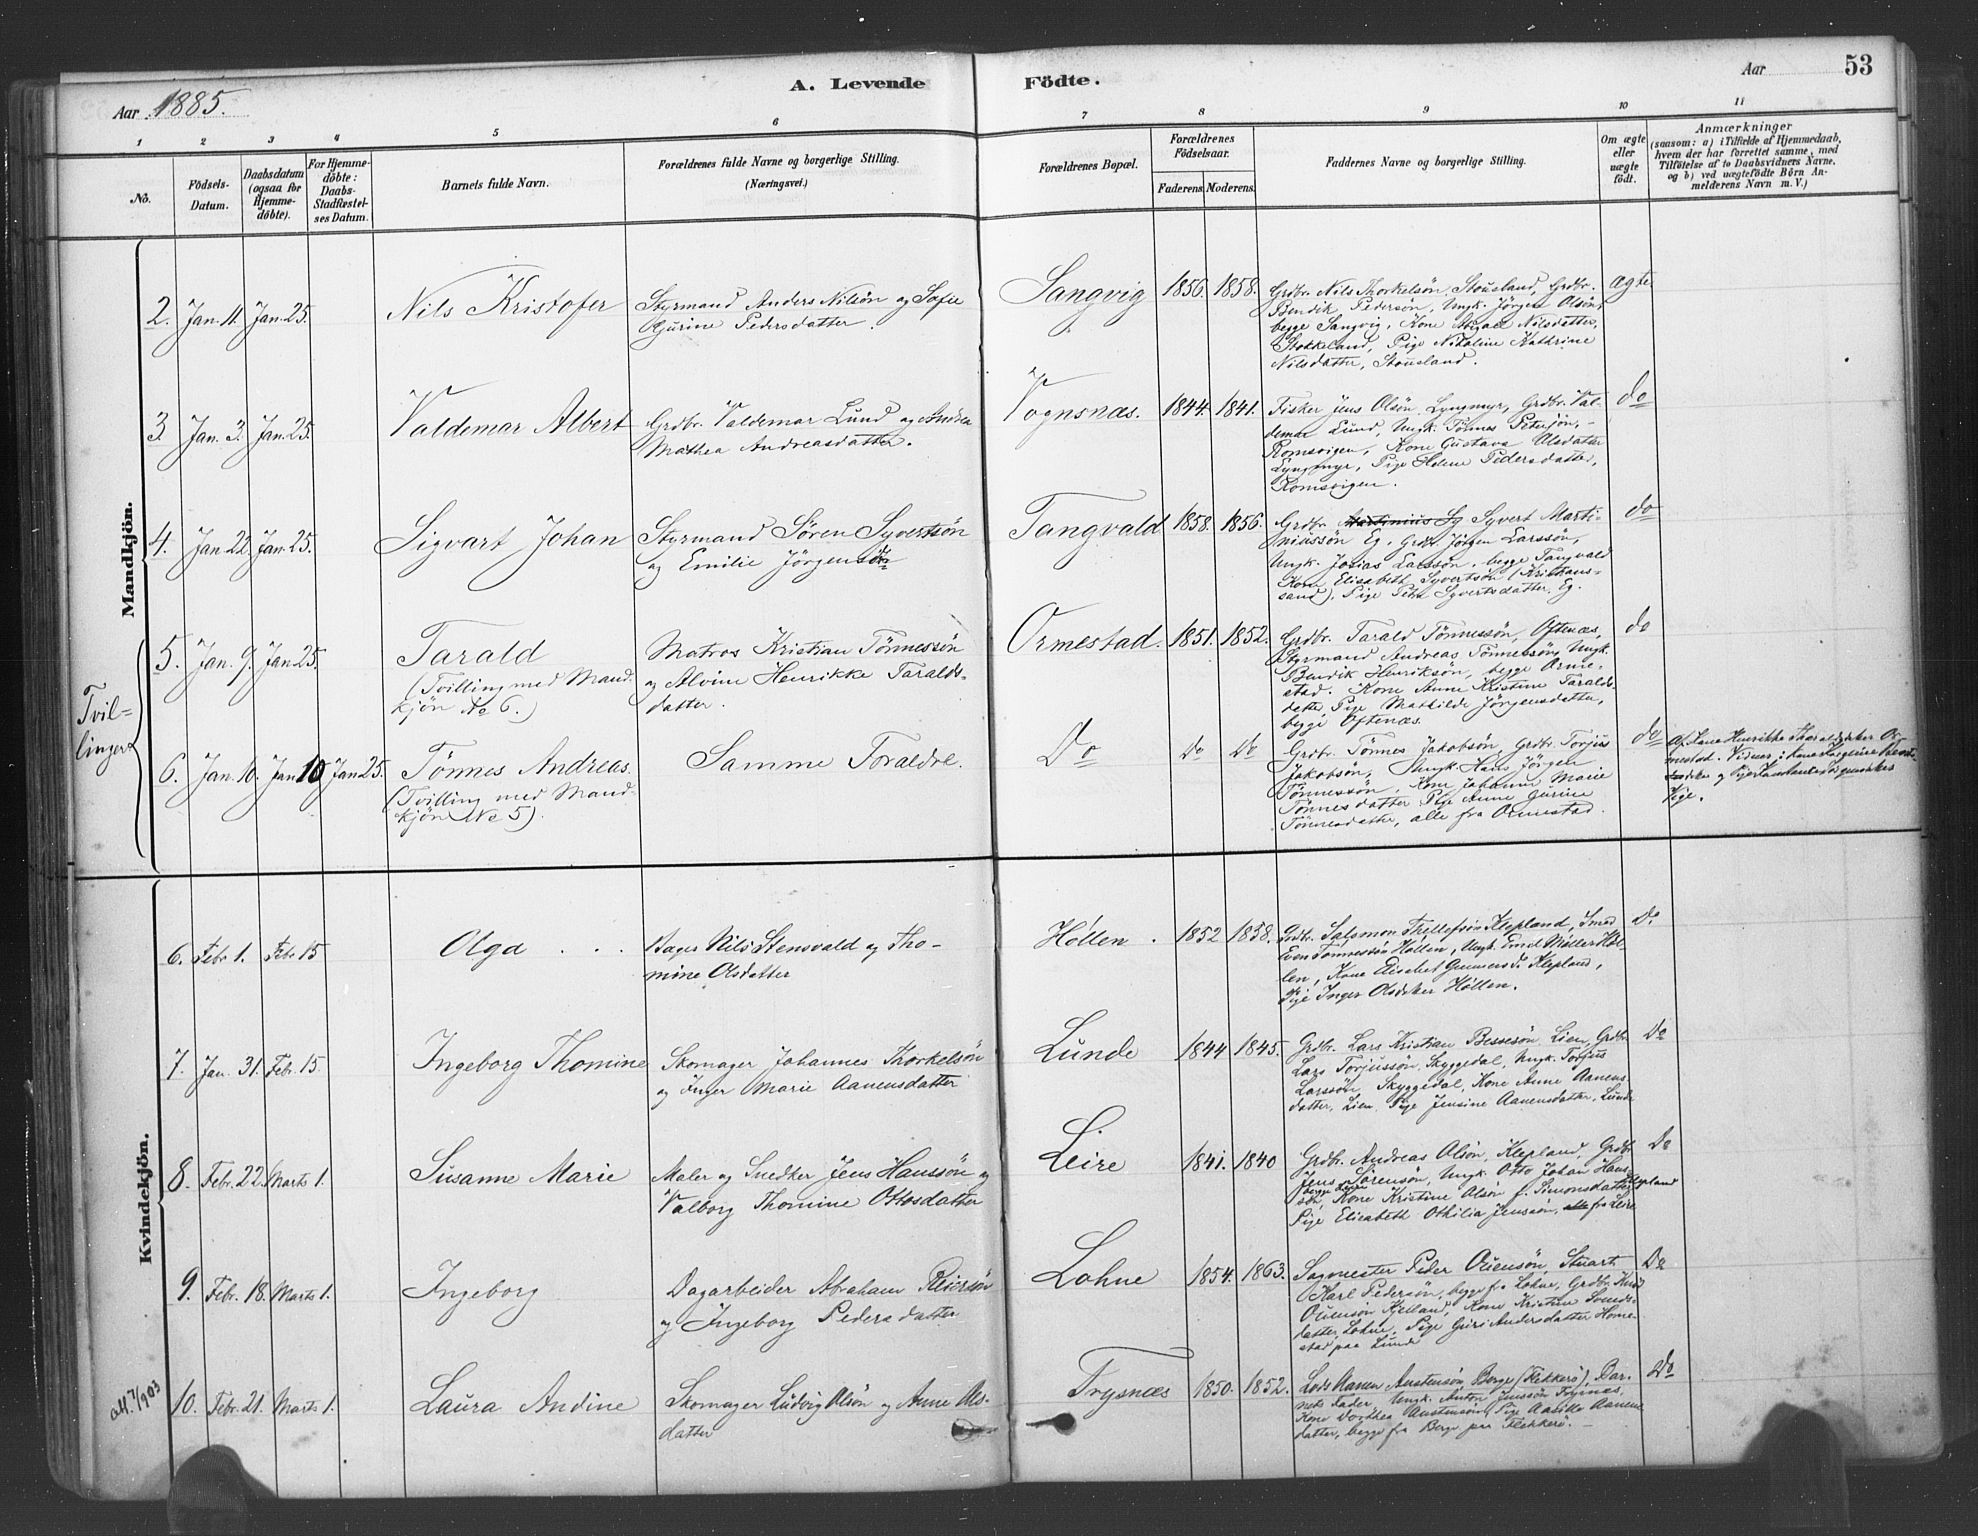 Aar 1885.
A. Levende Födte.
Aar
53
1
2
3
4
5
6
7
8
9
10
11
No.
Födsels-
Datum.
Daabsdatum
(ogsaa for
Hjemme-
döbte).
For Hjemme-
döbte:
Daabs-
Stadfæstel-
ses Datum.
Barnets fulde Navn.
Forældrenes fulde Navne og borgerlige Stilling.
(Næringsvei.)
Forældrenes Bopæl.
Forældrenes
Födselsaar.
Faderens. Moderens.
Faddernes Navne og borgerlige Stilling.
Om ægte
eller
uægte
födt.
Anmærkninger
(saasom: a) i Tilfælde af Hjemmedaab,
hvem der har forrettet samme, med
Tilföielse af to Daabsvidners Navne,
og b) ved uægtefödte Börn An-
melderens Navn m. V.)
Mandkjön.
2. Jan. 11. Jan. 25. Nils Kristofer
Styrmand Anders Nilsön og Sofie
Gurine Pedersdatter.
Sangvig 1856. 1858.
Grdbr. Nils Thorkelsön, Stousland, Grdbr.
Bendik Pedersön, Ungk. Jörgen Olsön,
begge Sangvig, Kone Abigael Nilsdatter,
Stokkeland, Pige Nikoline Kathrine
Nilsdatter, Stousland.
ægte
3. Jan. 3. Jan. 25. Valdemar Albert
Grdbr. Valdemar Lund og Andrea
Mathea Andreasdatter.
Vognsnæs. 1844. 1841.
Fisker Jens Olsön, Lyngmyr, Grdbr. Val-
demar Lund, Ungk. Tönnes Petersön,
Romsvigen, Kone Gustava Olsdatter
Lyngmyr, Pige Helene Pedersdatter,
Romsvigen.
do
4. Jan. 22. Jan. 25. Sigvart Johan
Styrmand Sören Syvertsön
og Emilie Jörgensön
Tangvald 1858. 1856.
Grdbr. Martinius Eg Syvert Marti-
niussön Eg, Grdbr. Jörgen Larssön,
Ungk. Josias Larssön, begge Tangvald
Kone Elisabeth Syvertsön (Kristians-
sand), Pige Petra Syvertsdatter, Eg.
do
Tvil-
linger
5. Jan. 9. Jan. 25. Tarald
(Tvilling med Mand-
kjön No 6.)
Matros Kristian Tönnessön
og Alvine Henrikke Taralds-
datter.
Ormestad. 1851. 1852.
Grdbr. Tarald Tönnessön, Oftenæs,
Styrmand Andreas Tönnessön, Ungk.
Bendik Henriksön, begge Orme-
stad. Kone Anne Kristine Taralds-
datter, Pige Mathilde Jörgensdatter,
begge Oftenæs.
do
6. Jan. 10. Jan. 10 Jan 25. Tönnes Andreas.
(Tvilling med Mand-
kjön No 5).
Samme Foraldre.
Do Do Do
Grdbr. Tönnes Jakobsön, Grdbr. Torjus
Jakobsön, Ungk. Hans Jörgen
Tönnessön, Kone Johanne Marie
Tönnesdatter Pige Anne Gurine
Tönnesdatter, alle fra Ormestad.
do
Af Kone Henrikke Tharaldsdatter Or-
mestad. Vidner:
Vige.
Kvindekjön.
6. Febr 1. Febr 15 Olga
Bager Nils Stensvald og Tho-
mine Olsdatter
Höllen. 1852 1858.
Grdbr. Salomon Thellefsön Klepland, Smed
Even Tönnessön Höllen, Ungk. Emil Möller Höl-
len, Kone Elisabet Gunnersd. Klepland,
Pige Inger Olsdatter Höllen.
Do
7. Jan. 31. Febr. 15. Ingeborg Thomine
Skomager Johannes Thorkelsön
og Inger Marie Aanensdatter
Lunde 1844 1845.
Grdbr. Lars Kristian Bessesön Lien, Grdbr.
Lars Torjussön, Skyggedal, Ungk. Torjus
Larssön, Skyggedal, Kone Anne Aanens-
datter, Lien, Pige Jensine Aanensdatter, Lunde
Do
8. Febr. 22. Marts 1. Susanne Marie
Maler og Snedker Jens Hanssön og
Valborg Thomine Ottosdatter
Leire 1841. 1840
Grdbr. Andreas Olsön, Klepland, Grdbr.
Jens Sörensön, Ungk. Otto Johan Hans-
sön, begge Leire, Kone Kristine Olsön f. Simonsdatter Klepland
Pige Elisabeth Othilia Jenssön, alle fra Leire
Do
9. Febr. 18. Marts 1. Ingeborg
Dagarbeider Abraham Reiersön
og Ingeborg Pedersdatter
Lohne 1854. 1863.
Sagmester Peder Ouensön, Stuart
Karl Pedersön, begge fra Lohne, Grdbr. Knud
Ouensön Kjelland, Kone Kristine Svends-
datter, Lohne, Pige Guri Andersdatter Home-
stad paa Lund
Do
10. Febr. 21. Marts 1. Laura Andine
Skomager Ludvig Olsön og Anne Ols-
datter
Trysnæs 1850. 1852.
Lods Aanen Austensön, Berge (Flekkerö), Bar-
nets Fader, Ungk. Anton Jenssön Trysnæs,
Kone Dorthea Austensön, Pige Aasille Aanens-
datter, begge fra Berge paa Flekkerö.
Do